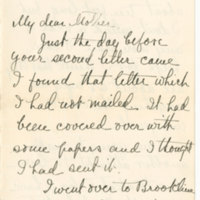 My dear Mother.
Just the day before
your second letter came
I found that letter which
I had not mailed. It had
been covered over with
some papers and I thought
I had sent it.
I went over to Brookline